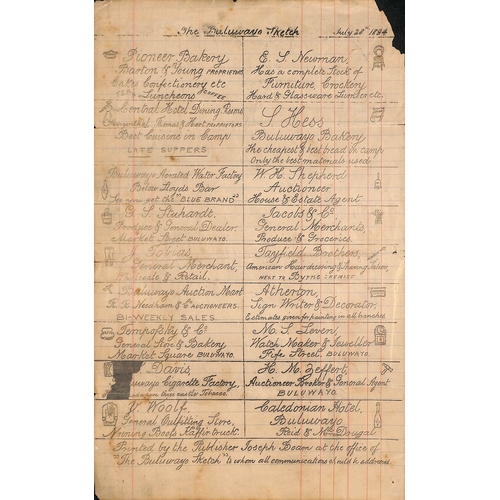 The Buluwayo Sketch July 20th 1894
Pioneer Bakery
Barton & Young PROPRIETORS
Cakes Confectionery etc
Luncheons
Central Hotel Dining Rooms
Thomas & Hoert PROPRIETORS
Best Cuisine in Camp
LATE SUPPERS
Buluwayo Aerated Water Factory
Below Lloyds Bar
See you get the "BLUE BRAND"
S. Stuhardt.
Produce & General Dealer.
Market Street BULUWAYO.
J. Tobias,
General Merchant,
Wholesale & Retail.
Buluwayo Auction Mart
Needham & Co AUCTIONEERS.
BI-WEEKLY SALES.
Tempofsky & Co
General Store & Bakery
Market Square BULUWAYO.
Davis,
Cigarette Factory,
Tobacco.
V. Woolf,
General Outfitting Store,
Mining Boots Kaffir truck.
E. S. Newman,
Has a complete Stock of
Furniture, Crockery
Hard & Glassware Lumber etc.
S. Hess
Buluwayo Bakery
The cheapest & best bread in camp
Only the best materials used
W. H. Shepherd
Auctioneer
House & Estate Agent
Jacobs & Co
General Merchants,
Produce & Groceries.
Tayfield Brothers,
American Hairdressing & Shaving Saloon,
NEXT TO BYRNE CHEMIST
Atherton,
Sign Writer & Decorator.
Estimates given for painting in all branches
M. S. Leven,
Watch Maker & Jeweller
Fife Street, BULUWAYO.
H. M. Zeffert,
Auctioneer Broker & General Agent
BULUWAYO.
Caledonian Hotel,
Buluwayo
Reid & MacDougal
Printed by the Publisher Joseph Beam at the office of
"The Buluwayo Sketch" to whom all communications should be addressed.